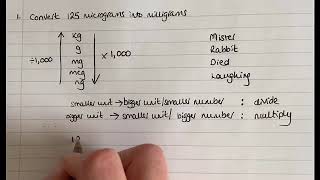 1. Convert 125 micrograms into milligrams
÷1,000
kg
g
mg
mcg
ng
x 1,000
Mister
Rabbit
Died
Laughing
smaller unit → bigger unit/smaller number : divide
bigger unit → smaller unit/ bigger number : multiply
12